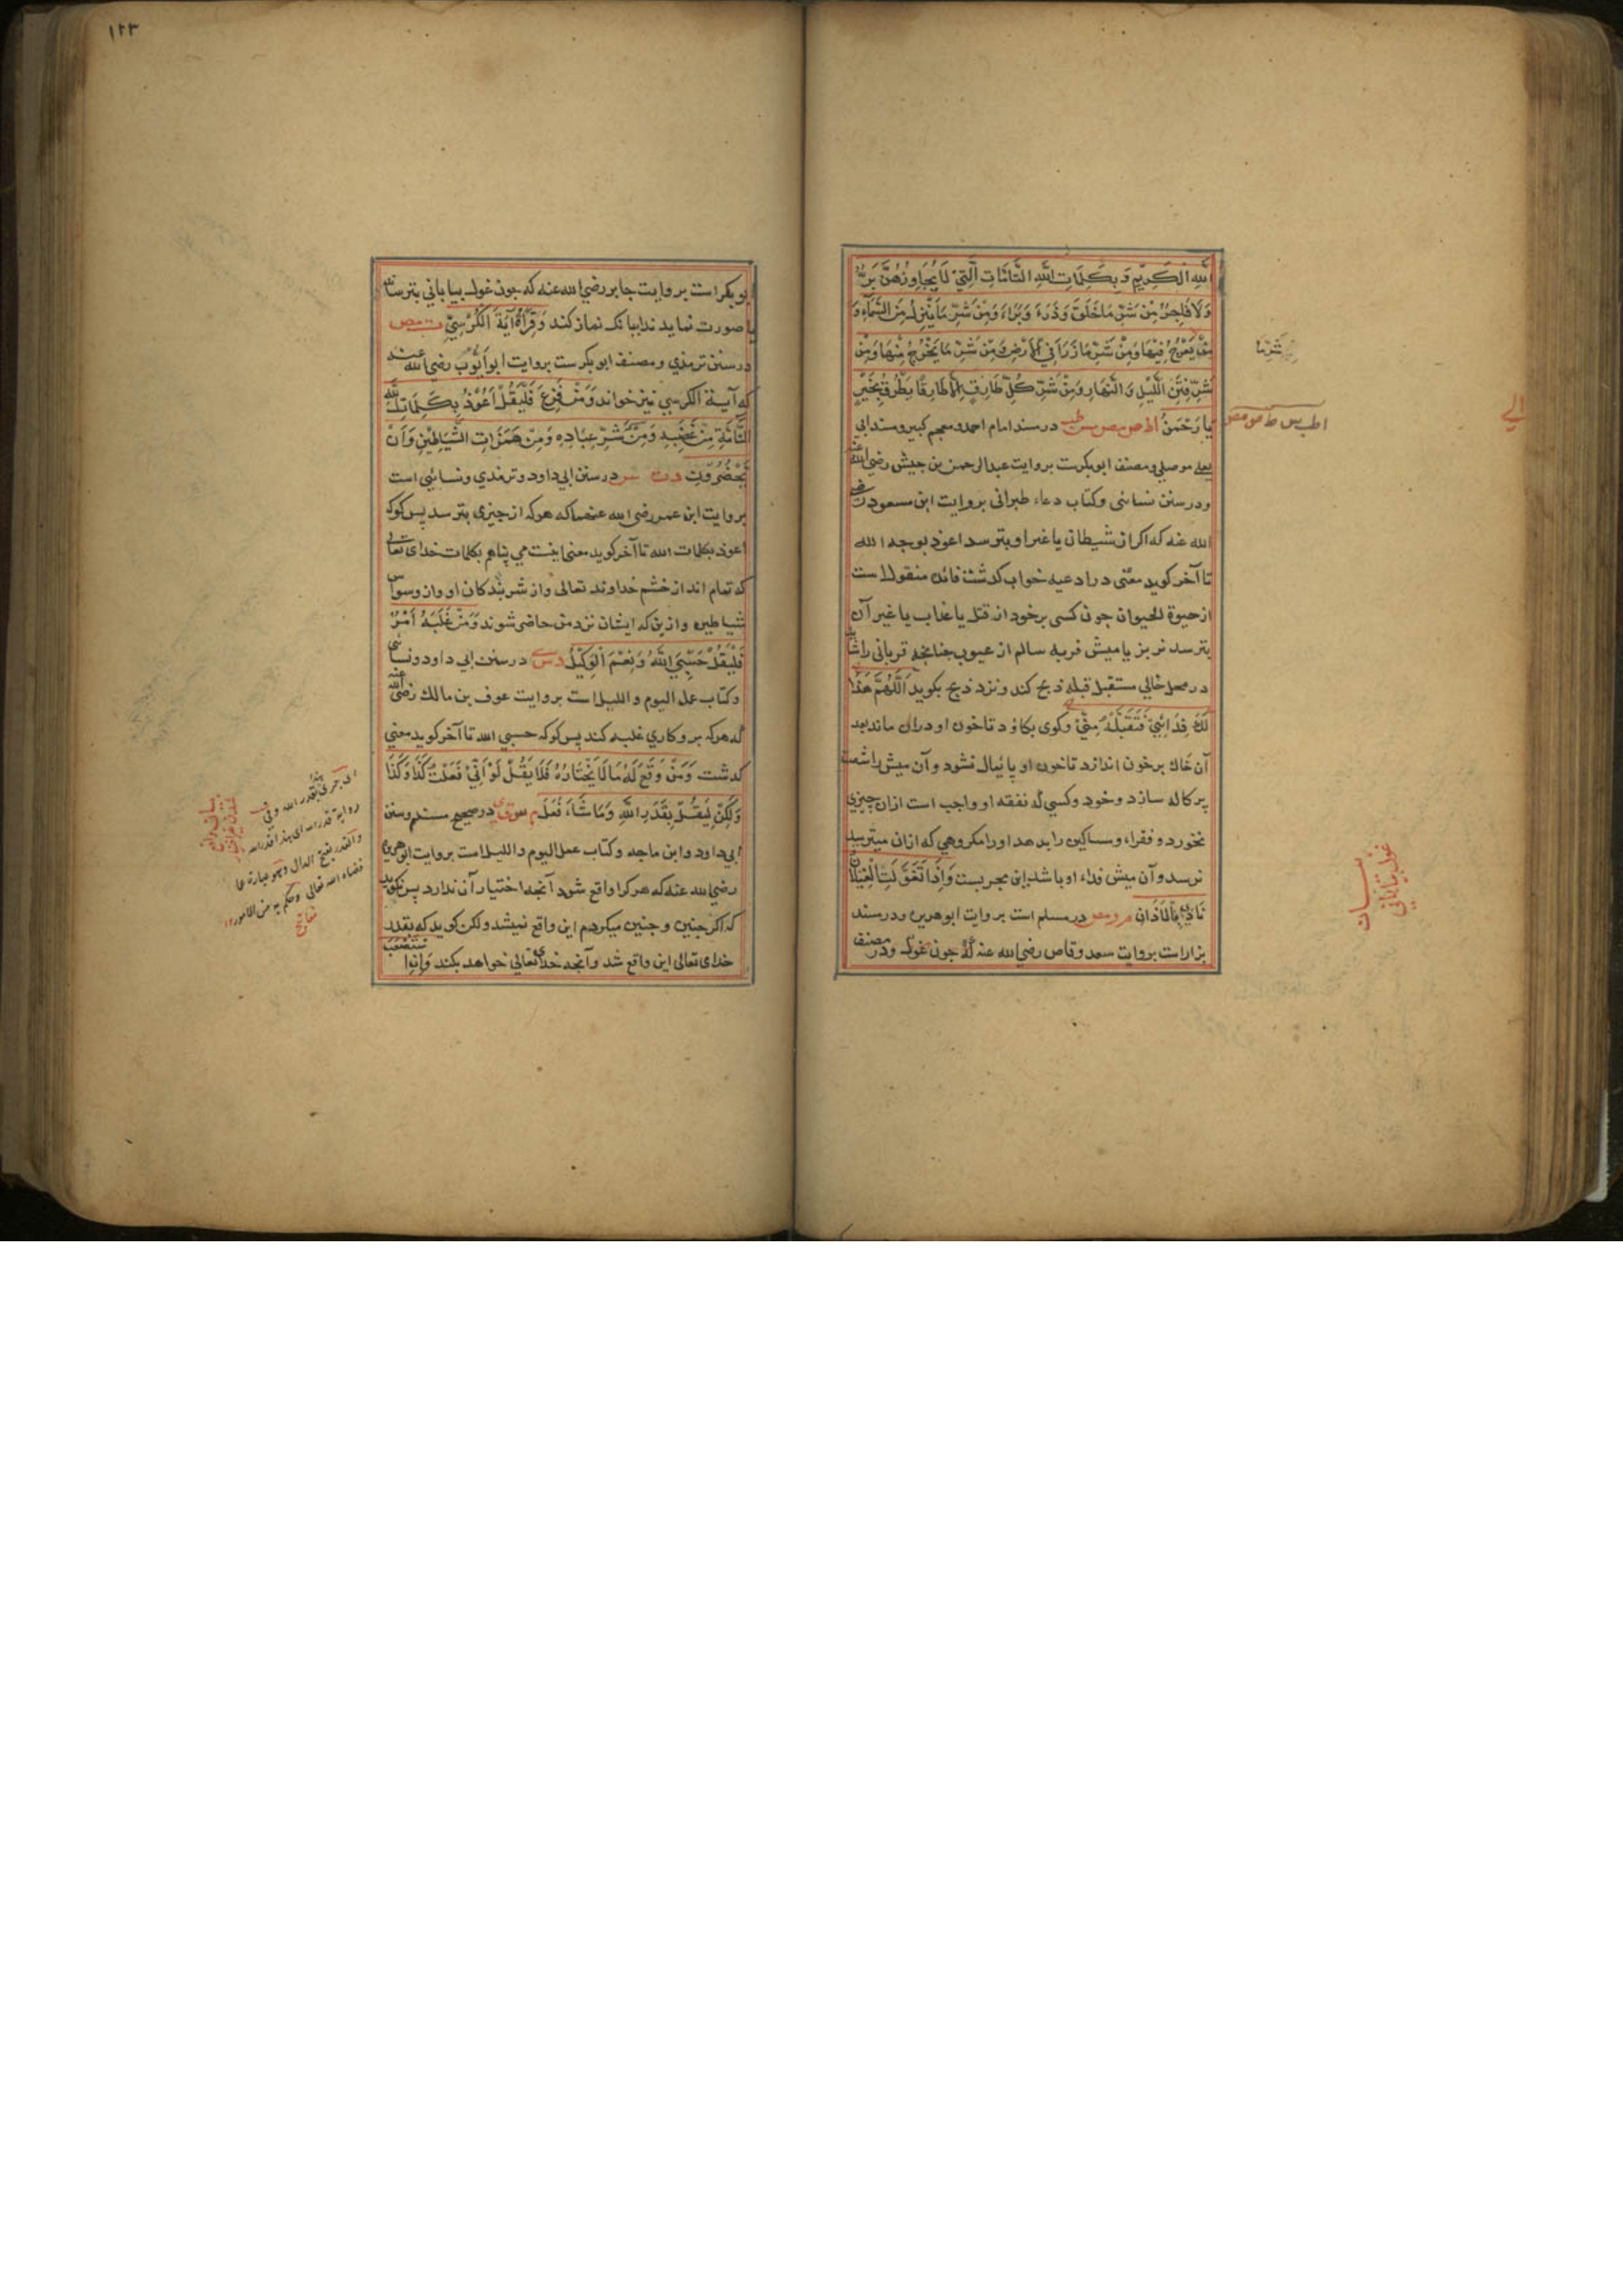 الله الكَرِيمِ وَبِكَلِمَاتِ اللهِ التَّامَّاتِ الَّتِي لَا يُجَاوِزُهُنَّ بَرٌّ
وَلَا فَاجِرٌ مِنْ شَرِّ مَا خَلَقَ وَذَرَءَ وَبَرَاءَ وَمِنْ شَرِّ مَا يَنْزِلُ مِنَ السَّمَاءِ وَ
يَعْرُجُ فِيهَا وَمِنْ شَرِّ مَا ذَرَأَ فِي الأَرْضِ وَمِنْ شَرِّ مَا يَخْرُجُ مِنْهَا وَمِنْ
شَرِّ فِتَنِ اللَّيْلِ وَالنَّهَارِ وَمِنْ شَرِّ كُلِّ طَارِقٍ إِلَّا طَارِقًا يَطْرُقُ بِخَيْرٍ
يَا رَحْمٰنُ در مسند امام احمد و معجم كبير و مسند ابي
يعلي موصلي و مصنف ابوبكرست بروايت عبدالرحمن بن جيش رضي الله عنه
ودر سنن نسائي وكتاب دعاء طبراني بروايت ابن مسعودست رضي
الله عنه كه اكر از شيطان يا غير او بترسد اعوذ بوجه الله
تا آخر كويد معني در ادعيه خواب كذشت فائده منقولست
از حيوة الحيوان جون كسي بر خود از قتل يا عذاب يا غير آن
بترسد نر بز يا ميش فربه سالم از عيوب جنانجه قرباني را شايد
در محل خالي مستقبل قبله ذبح كند و نزد ذبح بكويد اَللّٰهُمَّ هَذَا
لَكَ فِدَائِي فَتَقَبَّلْهُ مِنِّي وكوي بكاود تا خون او دران ماند بعد
آن خاك بر خون اندازد تا خون او پايمال نشود و آن ميش را شصت
پركاله سازد و خود و كسي كه نفقه او واجب است ازان چيزي
نخورد و فقراء ومساكين را بدهد اورا مكروهي كه ازان ميترسد
نرسد و آن ميش فداء او باشد اين مجربست وَإِذَا تَغَوَّلَتِ الْغِيلَانُ
نَادَى بِالْأَذَانِ م ر مص در مسلم است بروايت ابوهريره و در مسند
بزار است بروايت سعد وقاص رضي الله عنه كه جون غول و در مصنف
شَرِّمَا
الي
١٢٣
ابوبكر است بروايت جابر رضي الله عنه كه جون غول بياباني بترساند
يا صورت نمايد ندا ببانك نماز كند وَقِرَأَةُ آيَةِ الكُرْسِيِّ ت مص
در سنن ترمذي و مصنف ابوبكرست بروايت ابوايّوب رضي الله عنه
كه آية الكرسي نيز خواند وَمَنْ فَزِعَ فَلْيَقُلْ اَعُوْذُ بِكَلِمَاتِ اللهِ
التَّامَّةِ مِنْ غَضَبِهِ وَمِنْ شَرِّ عِبَادِهِ وَمِنْ هَمَزَاتِ الشَّيَاطِيْنِ وَاَنْ
يَحْضُرُوْنِ د ت س در سنن ابي داود و ترمذي و نسائي است
بروايت ابن عمر رضي الله عنهما كه هركه از چيزي بترسد پس كو كه
اعوذ بكلمات الله تا آخر كويد معني اينست مي پناهم بكلمات خداي تعالى
كه تمام اند از خشم خداوند تعالى واز شر بندكان او واز وسواس
شياطين وازين كه ايشان نزد من حاضر شوند وَمَنْ غَلَبَهُ اَمْرٌ
فَلْيَقُلْ حَسْبِيَ اللهُ وَنِعْمَ الْوَكِيْلُ د س در سنن ابي داود ونسائي
وكتاب عمل اليوم والليل است بروايت عوف بن مالك رضي الله عنه
كه هركه بر و كاري غلبه كند پس كو كه حسبي الله تا آخر كويد معني
كذشت وَمَنْ وَقَعَ لَهُ مَا لَا يَخْتَارُهُ فَلَا يَقُلْ لَوْ اَنِّي فَعَلْتُ كَذَا وَكَذَا
وَلَكِنْ لِيَقُلْ بِقَدَرِ اللهِ وَمَا شَاءَ فَعَلَ م س ق ي در صحيح مسلم و سنن
ابي داود وابن ماجه وكتاب عمل اليوم والليل است بروايت ابوهريره
رضي الله عنه كه هركرا واقع شود آنجه اختيار آن ندارد پس نكويد
كه اكر جنين و جنين ميكردم اين واقع نميشد ولكن كويد كه بقدر
خداي تعالى اين واقع شد و آنجه خداي تعالى خواهد بكند وَاِذَا اسْتَصْعَبَ